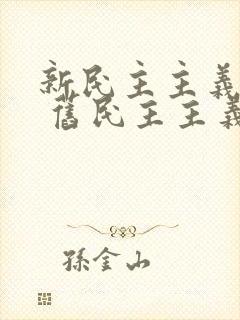 新民主主義
舊民主主義
孫金山